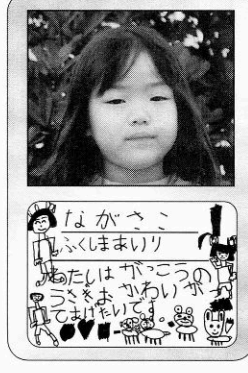 ながさこ
ふくしまあいり
わたしは がっこうの
うさぎお かわいが
てあげたいです。